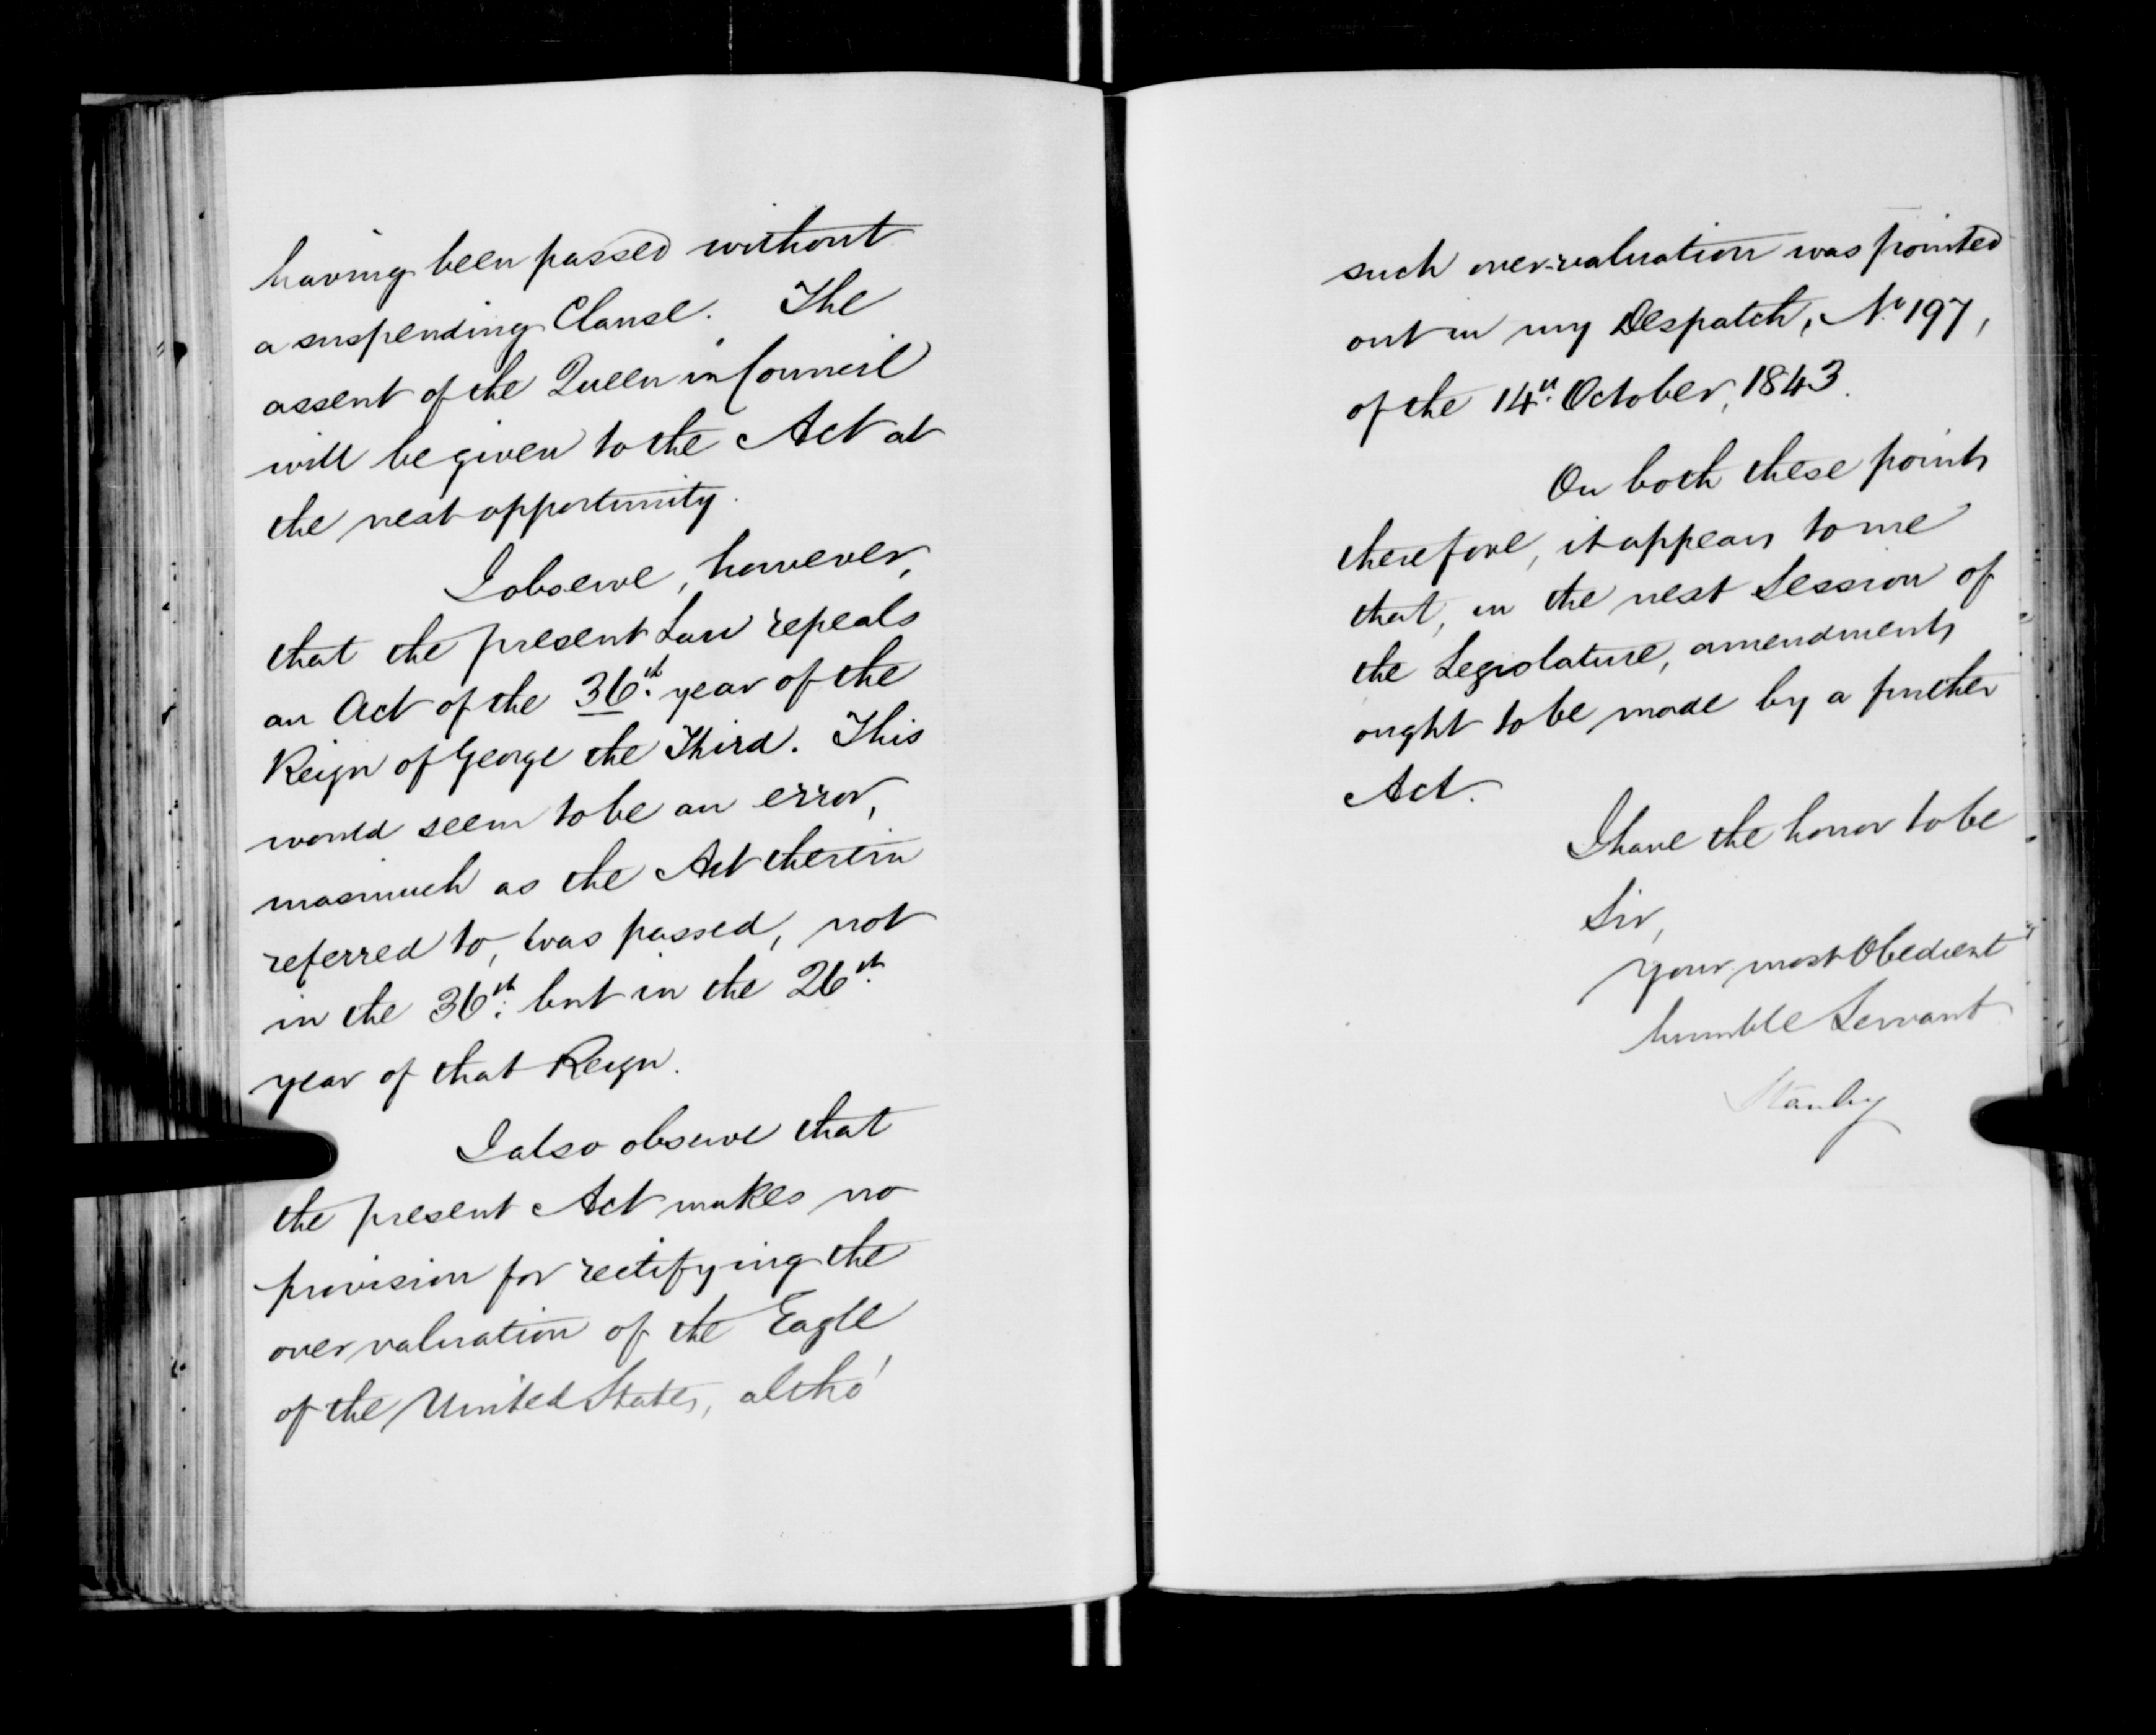 having been passed without
a suspending Clause. The
assent of the Queen in Council
will be given to the Act at
the next opportunity.
I observe, however,
that the present Law repeals
an Act of the 36th. year of the
Reign of George the Third. This
would seem to be an error,
inasmuch as the Act therein
referred to, was passed, not
in the 36th. but in the 26th.
year of that Reign.
I also observe that
the present Act makes no
provision for rectifying the
over valuation of the Eagle
of the United States, altho'
such over-valuation was pointed
out in my Despatch, No. 197,
of the 14th. October, 1843.
On both these points
therefore, it appears to me
that, in the next Session of
the Legislature, amendments
ought to be made by a further
Act.
I have the honor to be
Sir,
Your most Obedient
humble Servant
Stanley